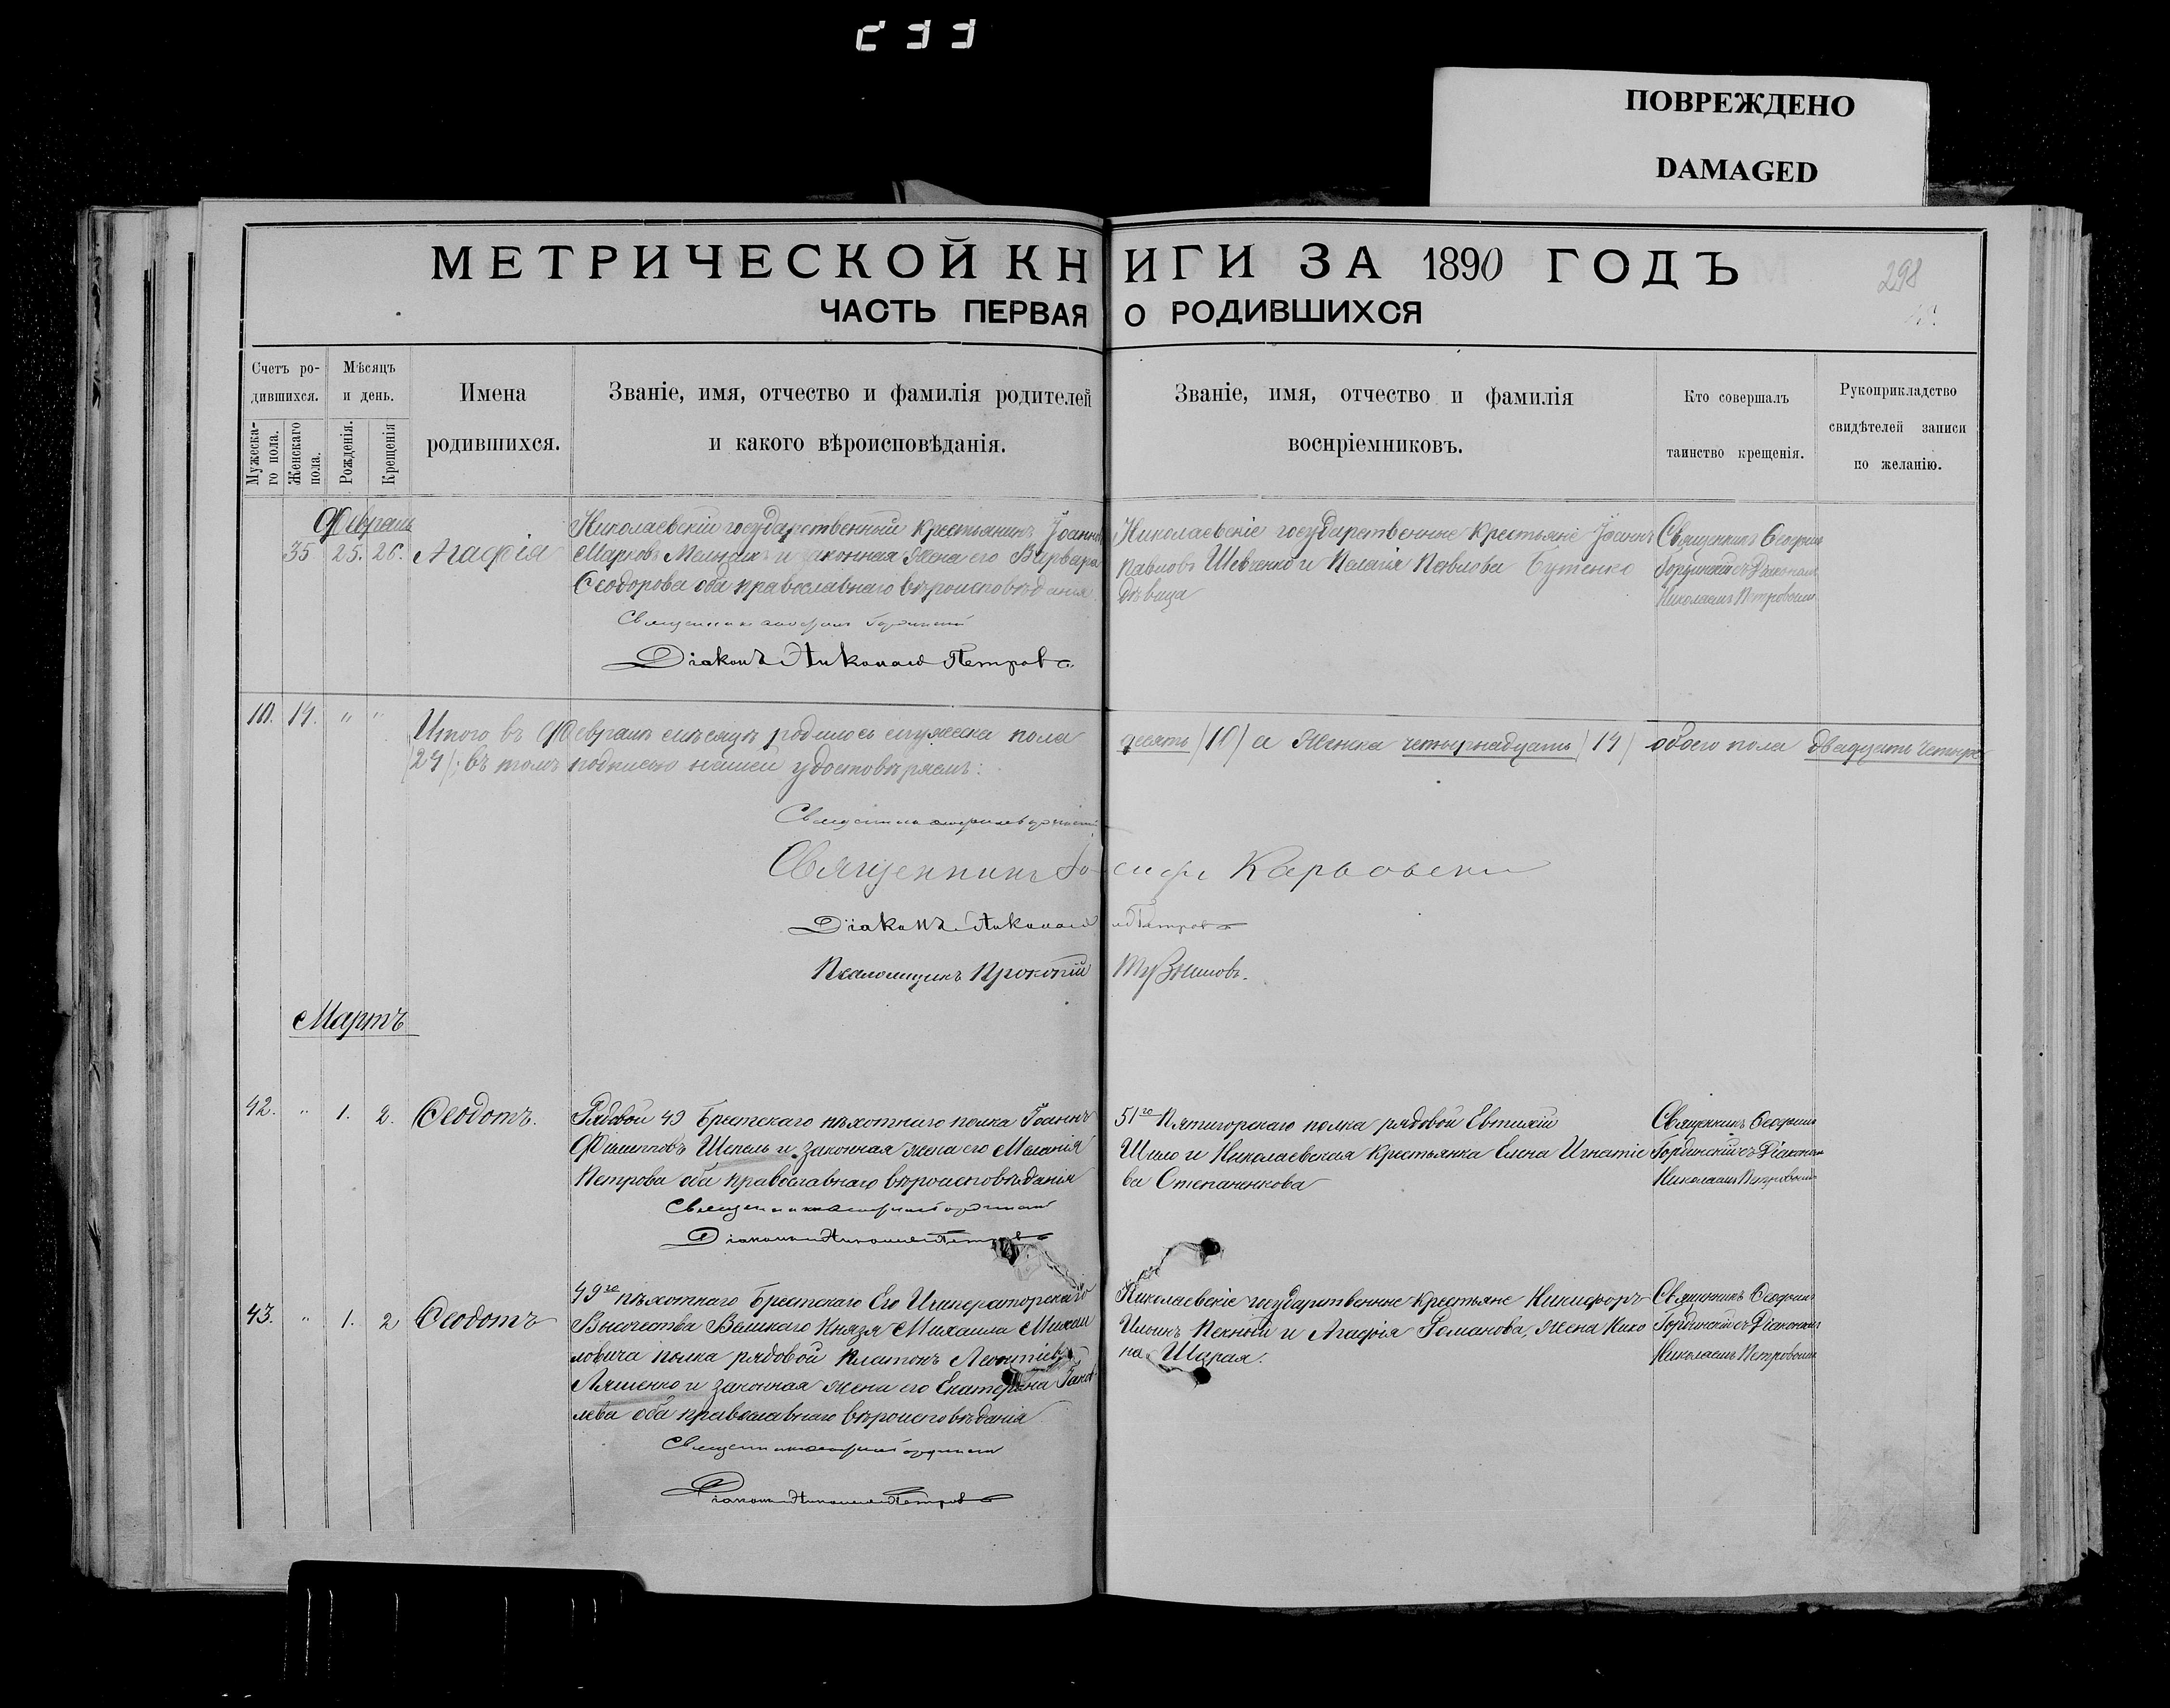 233
ПОВРЕЖДЕНО
DAMAGED
МЕТРИЧЕСКОЙ КНИГИ ЗА 1890 ГОДЪ
298
ЧАСТЬ ПЕРВАЯ О РОДИВШИХСЯ
Счетъ родившихся.
Мужескаго пола.
Женскаго пола.
Мѣсяцъ и день.
Рожденія.
Крещенія
Имена родившихся.
Званіе, имя, отчество и фамилія родителей
и какого вѣроисповѣданія.
Званіе, имя, отчество и фамилія
воспріемниковъ.
Кто совершалъ
таинство крещенія.
Рукоприкладство
свидѣтелей записи
по желанію.
Февраль
35 25. 26. Агафія
Николаевскій государственный крестьянинъ Іоаннъ
Марковъ Мельникъ и законная жена его Варвара
Ѳеодорова оба православнаго вѣроисповѣданія
Священникъ
Діаконъ Николай Петровъ
Николаевскіе государственные крестьяне Іоаннъ
Павловъ Шевченко и Пелагія Павлова Бутенко
дѣвица
Священникъ Ѳеофилъ
Гординскій съ Діакономъ
Николаемъ Петровымъ
10. 14. " "
Итого въ Февралѣ мѣсяцѣ родилось мужеска пола десять /10/ а женска четырнадцать /14/ обоего пола двадцать четыре
/24/; въ томъ подписью нашей удостовѣряемъ:
Священникъ
Священникъ Іосифъ
Діаконъ Николай Петровъ
Псаломщикъ Прокопій
Мартъ
42. " 1. 2. Ѳеодотъ.
Рядовой 49 Брестскаго пѣхотнаго полка Іоаннъ
Филипповъ Шепель и законная жена его Меланія
Петрова оба православнаго вѣроисповѣданія
Священникъ
Діаконъ Николай Петровъ
51го Пятигорскаго полка рядовой Евтихій
Шило и Николаевская крестьянка Елена Игнатіева
Степаненкова
Священникъ Ѳеофилъ
Гординскій съ Діакономъ
Николаемъ Петровымъ
43. " 1. 2 Ѳеодотъ
49го пѣхотнаго Брестскаго Его Императорскаго
Высочества Великаго Князя Михаила Михаиловича
полка рядовой Платонъ Леонтіевъ
Ляшенко и законная жена его Екатерина Іаковлева
оба православнаго вѣроисповѣданія
Священникъ
Діаконъ Николай Петровъ
Николаевскіе государственные крестьяне Никифоръ
Ильинъ Пекный и Агафія Романова, жена
Шарая.
Священникъ Ѳеофилъ
Гординскій съ Діакономъ
Николаемъ Петровымъ